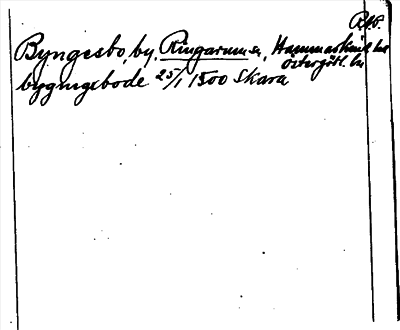 Byngesbo, by, Ringarums sn, Hammarkinds hd
Östergötl. ln
bygnugebode 25/1 1500 Skara